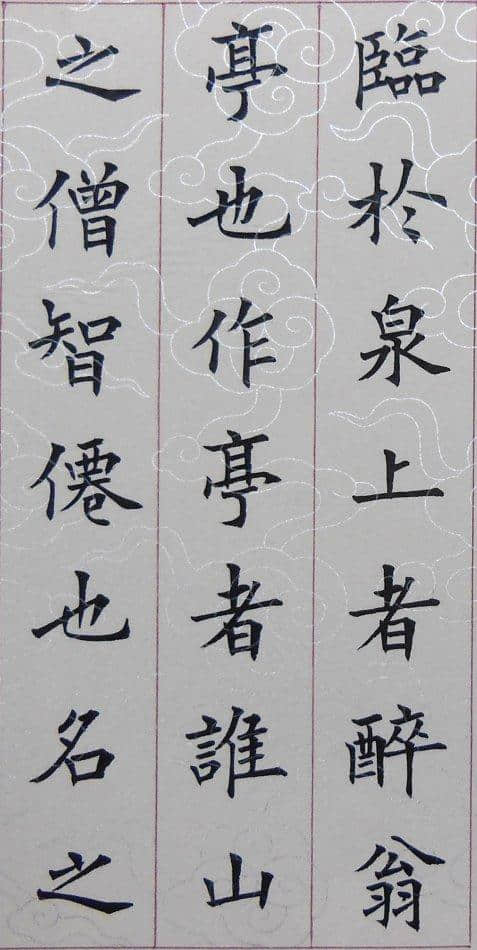 臨於泉上者醉翁
亭也作亭者誰山
之僧智僊也名之